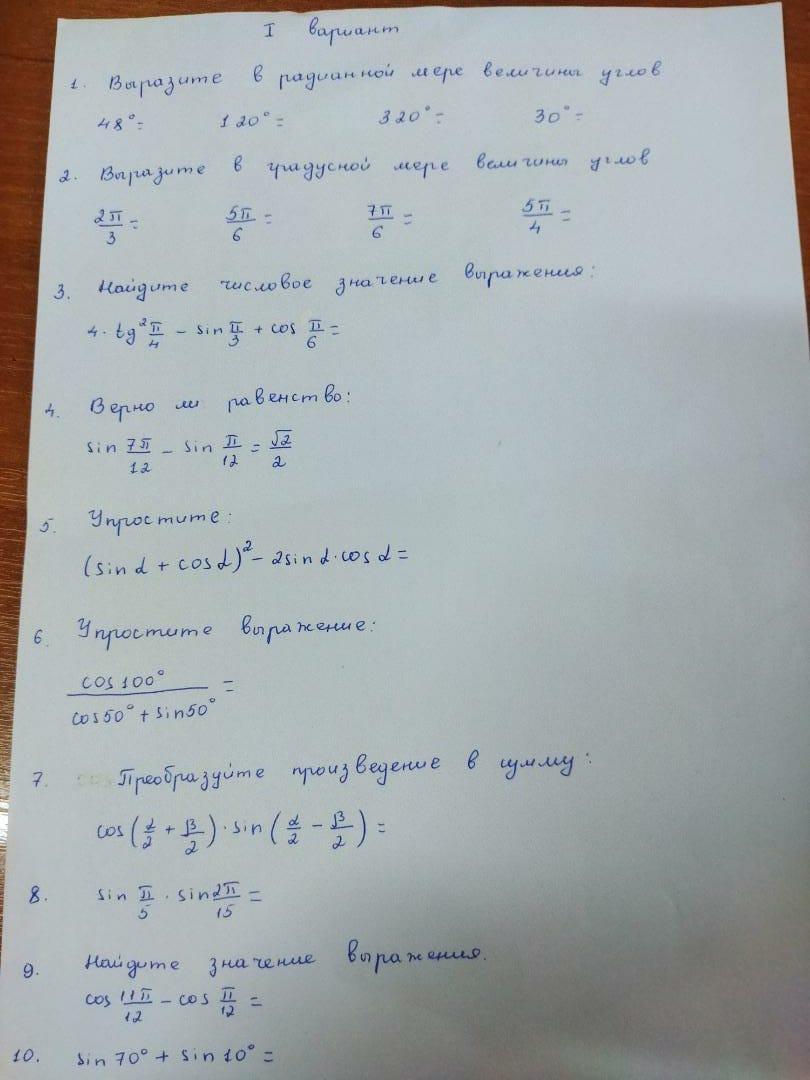 I вариант
1. Выразите в радианной мере величины углов
48°= 120°= 320°= 30°=
2. Выразите в градусной мере величины углов
2π/3= 5π/6= 7π/6= 5π/4=
3. Найдите числовое значение выражения:
4·tg²π/4 - sin π/3 + cos π/6=
4. Верно ли равенство:
sin 7π/12 - sin π/12 = √2/2
5. Упростите:
(sin α + cos α)² - 2sin α·cos α=
6. Упростите выражение:
cos100°/cos50°+sin50° =
7. Преобразуйте произведение в сумму:
cos(α/2 + β/2)·sin(α/2 - β/2)=
8. sin π/5 · sin 2π/15 =
9. Найдите значение выражения.
cos 11π/12 - cos π/12 =
10. sin 70° + sin 10° =